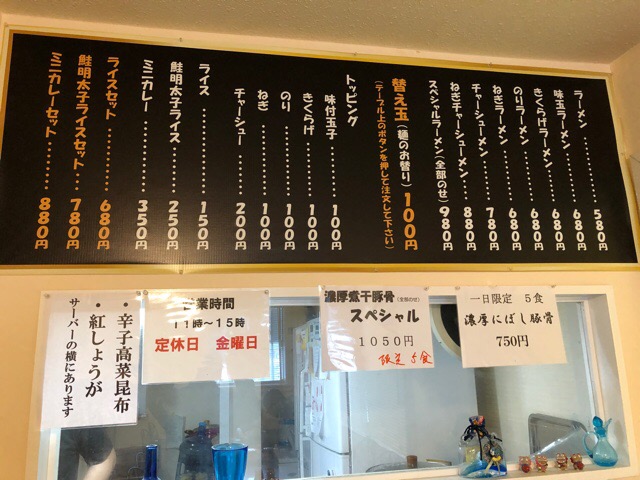 ラーメン............580円
味玉ラーメン.........680円
きくらげラーメン......680円
のりラーメン.........680円
ねぎラーメン.........680円
チャーシューメン......780円
ねぎチャーシューメン...880円
スペシャルラーメン(全部のせ)...980円
替え玉(麺のお替り)100円
(テーブル上のボタンを押して注文して下さい)
トッピング
味付玉子.........100円
きくらげ.........100円
のり............100円
ねぎ............100円
チャーシュー......200円
ライス............150円
鮭明太子ライス......250円
ミニカレー.........350円
ライスセット.........680円
鮭明太子ライスセット...780円
ミニカレーセット......880円
・辛子高菜昆布
・紅しょうが
サーバーの横にあります
営業時間
11時～15時
定休日 金曜日
濃厚煮干豚骨(全部のせ)
スペシャル
1050円
限定5食
一日限定 5食
濃厚にぼし豚骨
750円